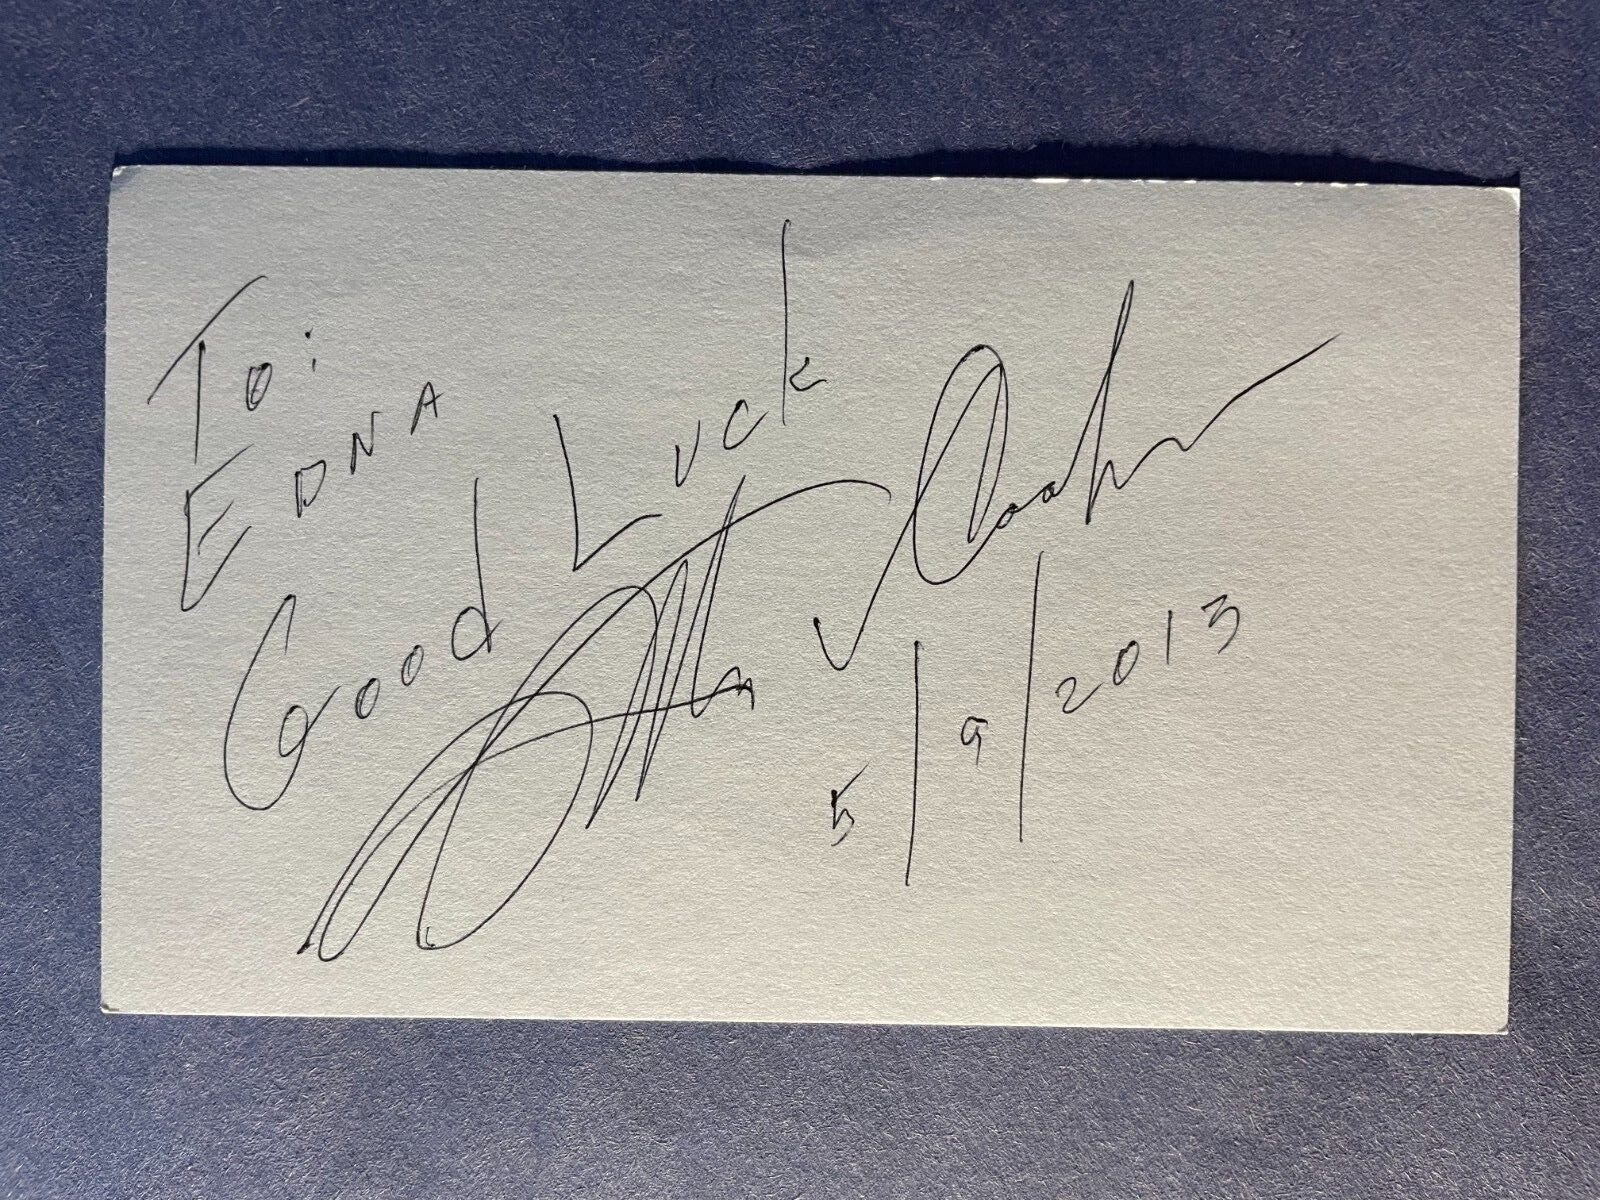 To:
EDNA
Good Luck
5/9/2013